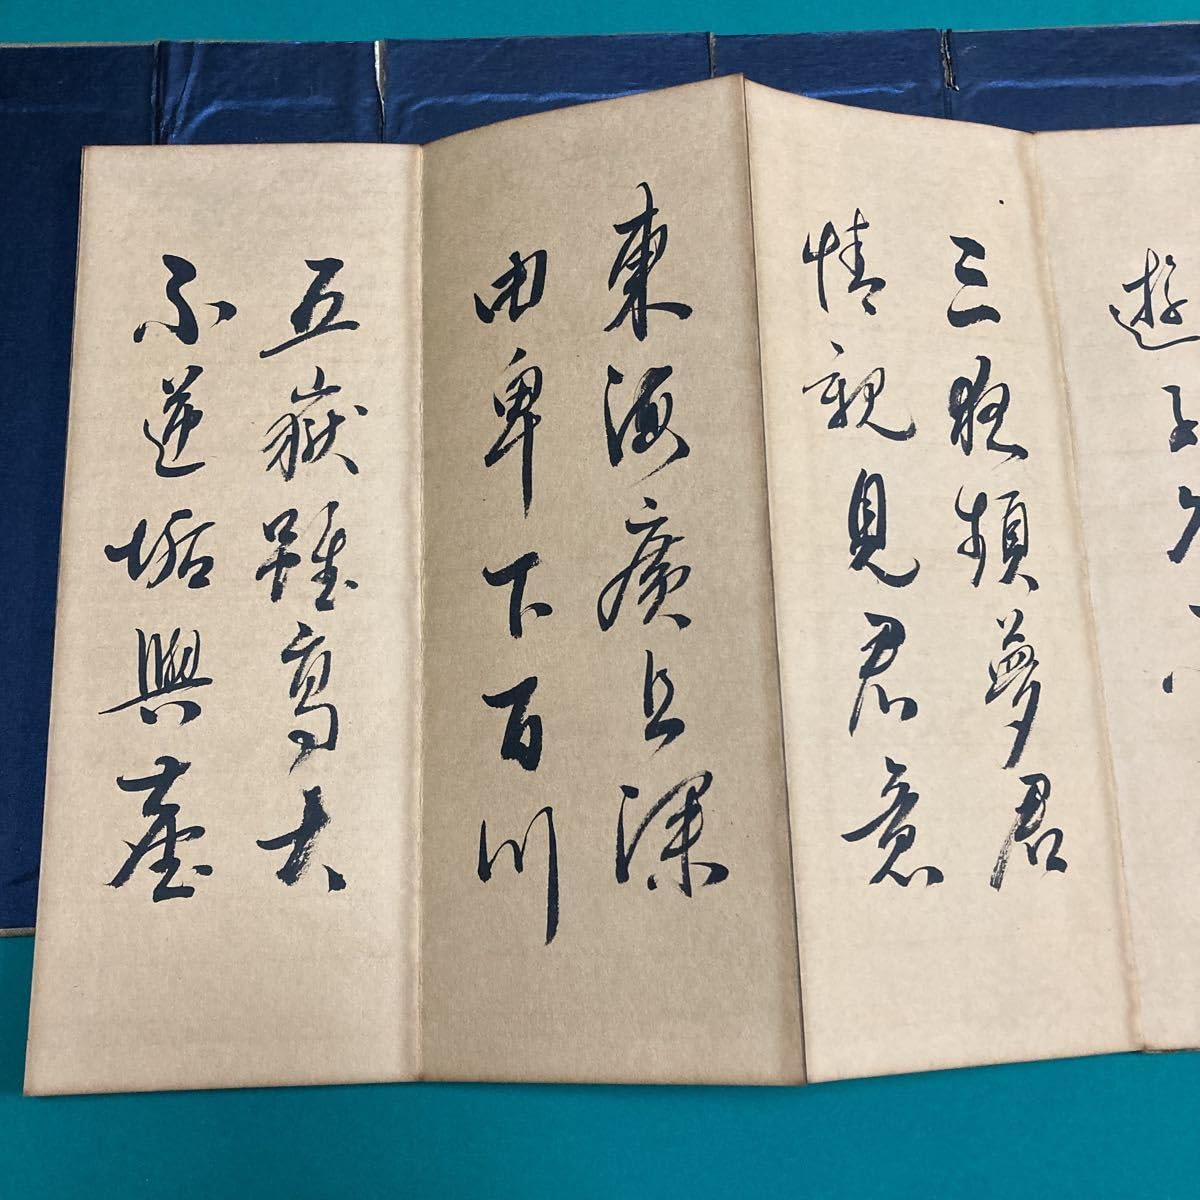 遊子久不
三夜頻夢君
情親見君意
東海廣且深
由卑下百川
五嶽雖高大
不逆垢與塵